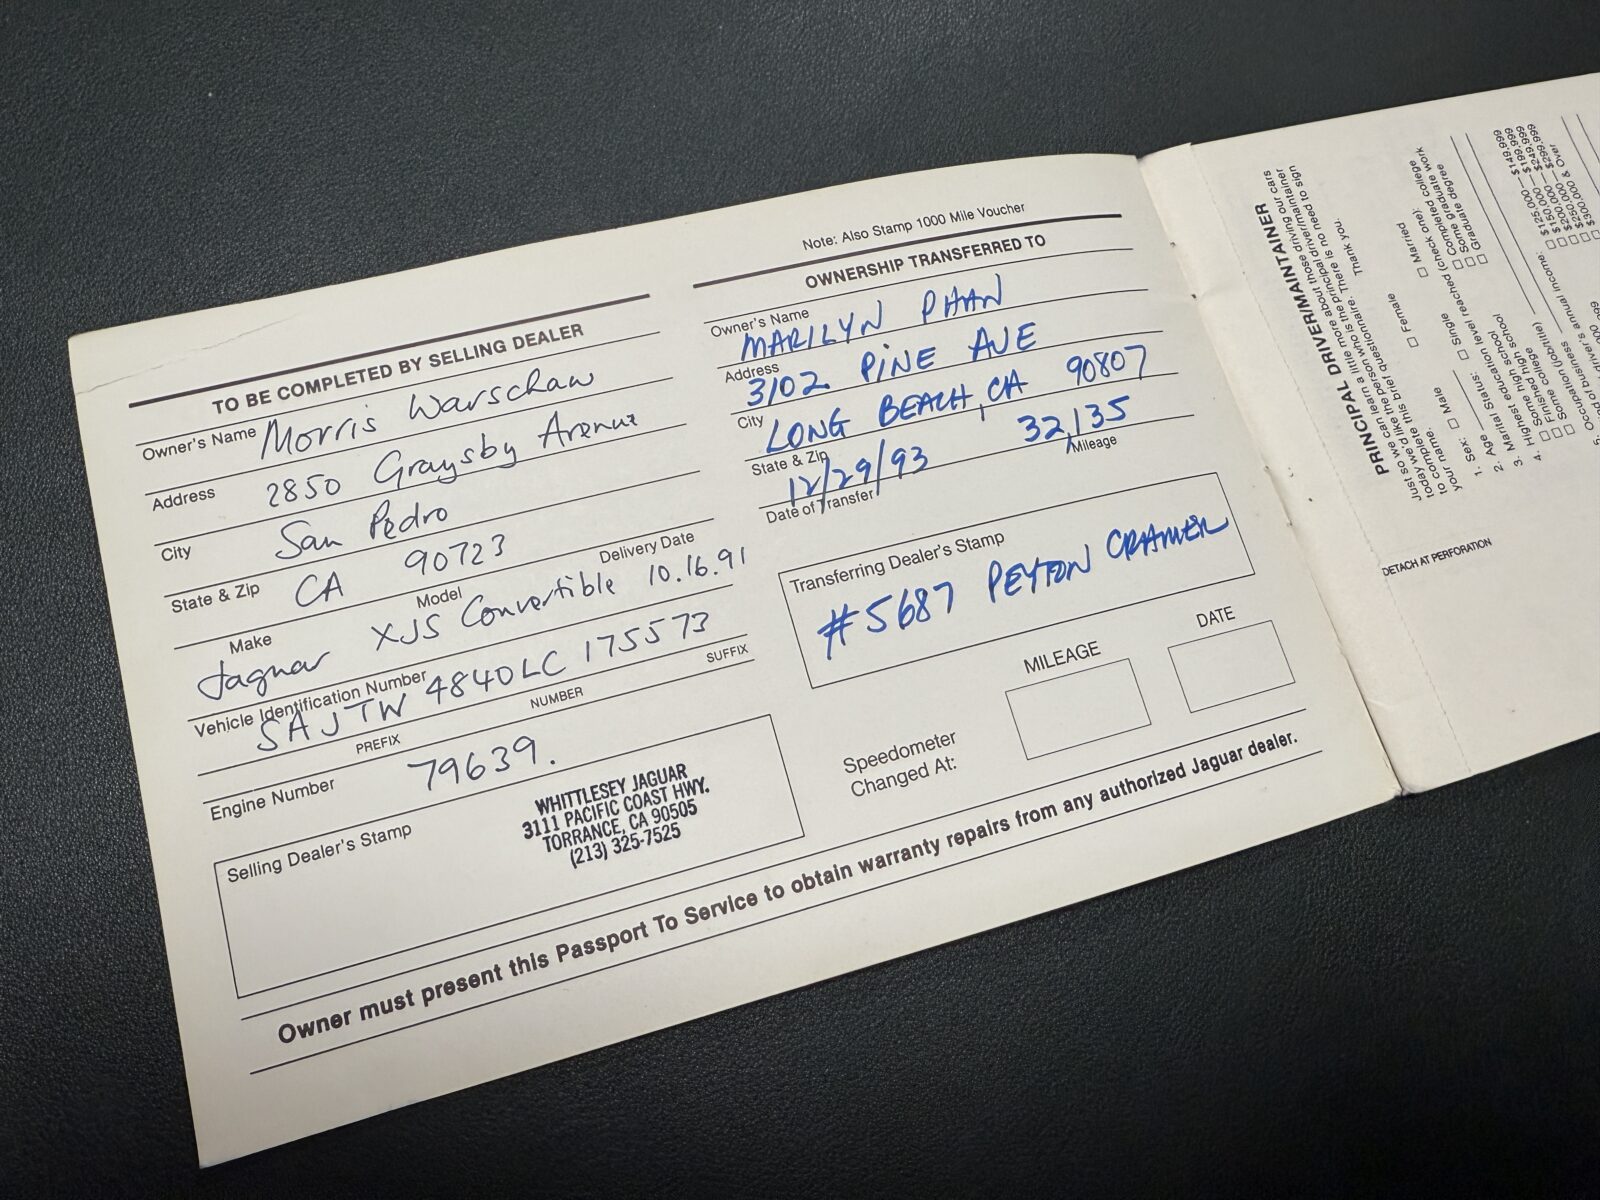 TO BE COMPLETED BY SELLING DEALER
Owner's Name Morris Warschaw
Address 2850 Graysby Avenue
City San Pedro
State & Zip CA 90723
Make Model Delivery Date
Jaguar XJS Convertible 10.16.91
Vehicle Identification Number
SAJTW 4840LC 175573
PREFIX NUMBER SUFFIX
Engine Number 79639.
Selling Dealer's Stamp
WHITTLESEY JAGUAR
3111 PACIFIC COAST HWY.
TORRANCE, CA 90505
(213) 325-7525
Owner must present this Passport To Service to obtain warranty repairs from any authorized Jaguar dealer.
Note: Also Stamp 1000 Mile Voucher
OWNERSHIP TRANSFERRED TO
Owner's Name
MARILYN PHAN
Address
3102 PINE AVE
City
LONG BEACH, CA 90807
State & Zip
12/29/93 32,135
Date of Transfer Mileage
Transferring Dealer's Stamp
#5687 PEYTON CRAMER
MILEAGE DATE
Speedometer
Changed At:
PRINCIPAL DRIVER/MAINTAINER
Just so we can learn a little more about those driving our cars
today we'd like the person who is the principal driver/maintainer
to complete this brief questionnaire. There is no need to sign
your name. Thank you.
1. Sex: Male Female
2. Age
3. Marital Status: Single Married
4. Highest education level reached (check one):
Some high school
Finished high school
Some college
Completed college
Some graduate work
Graduate degree
Occupation (job/title)
of business
driver's annual income:
$125,000 – $149,999
$150,000 – $199,999
$200,000 – $249,999
$250,000 – $299,999
$300,000 & Over
DETACH AT PERFORATION